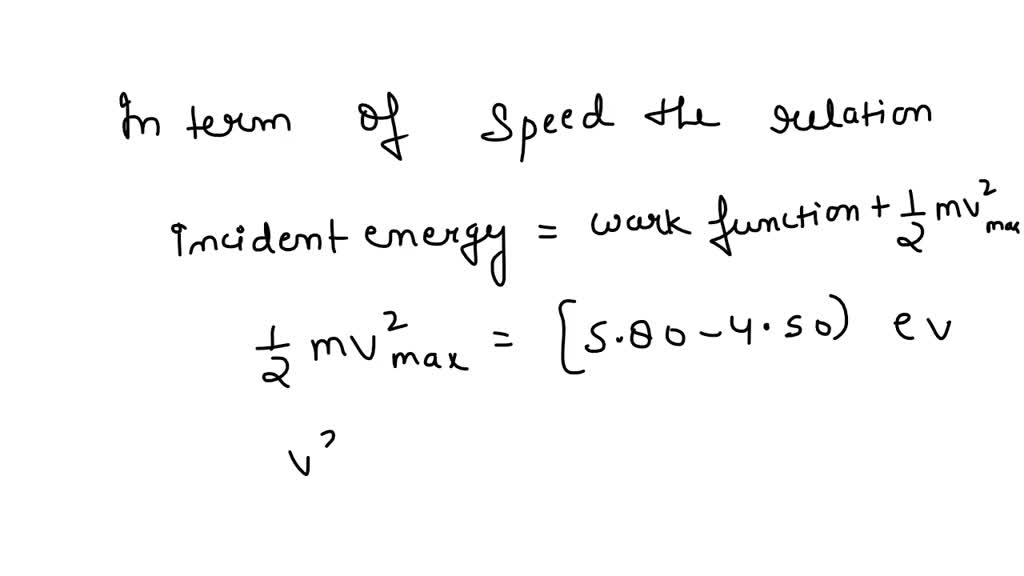 In term of Speed the relation
incident energy = work function + 1/2 mv²max
1/2 mv²max = [5.80 - 4.50) ev
v²